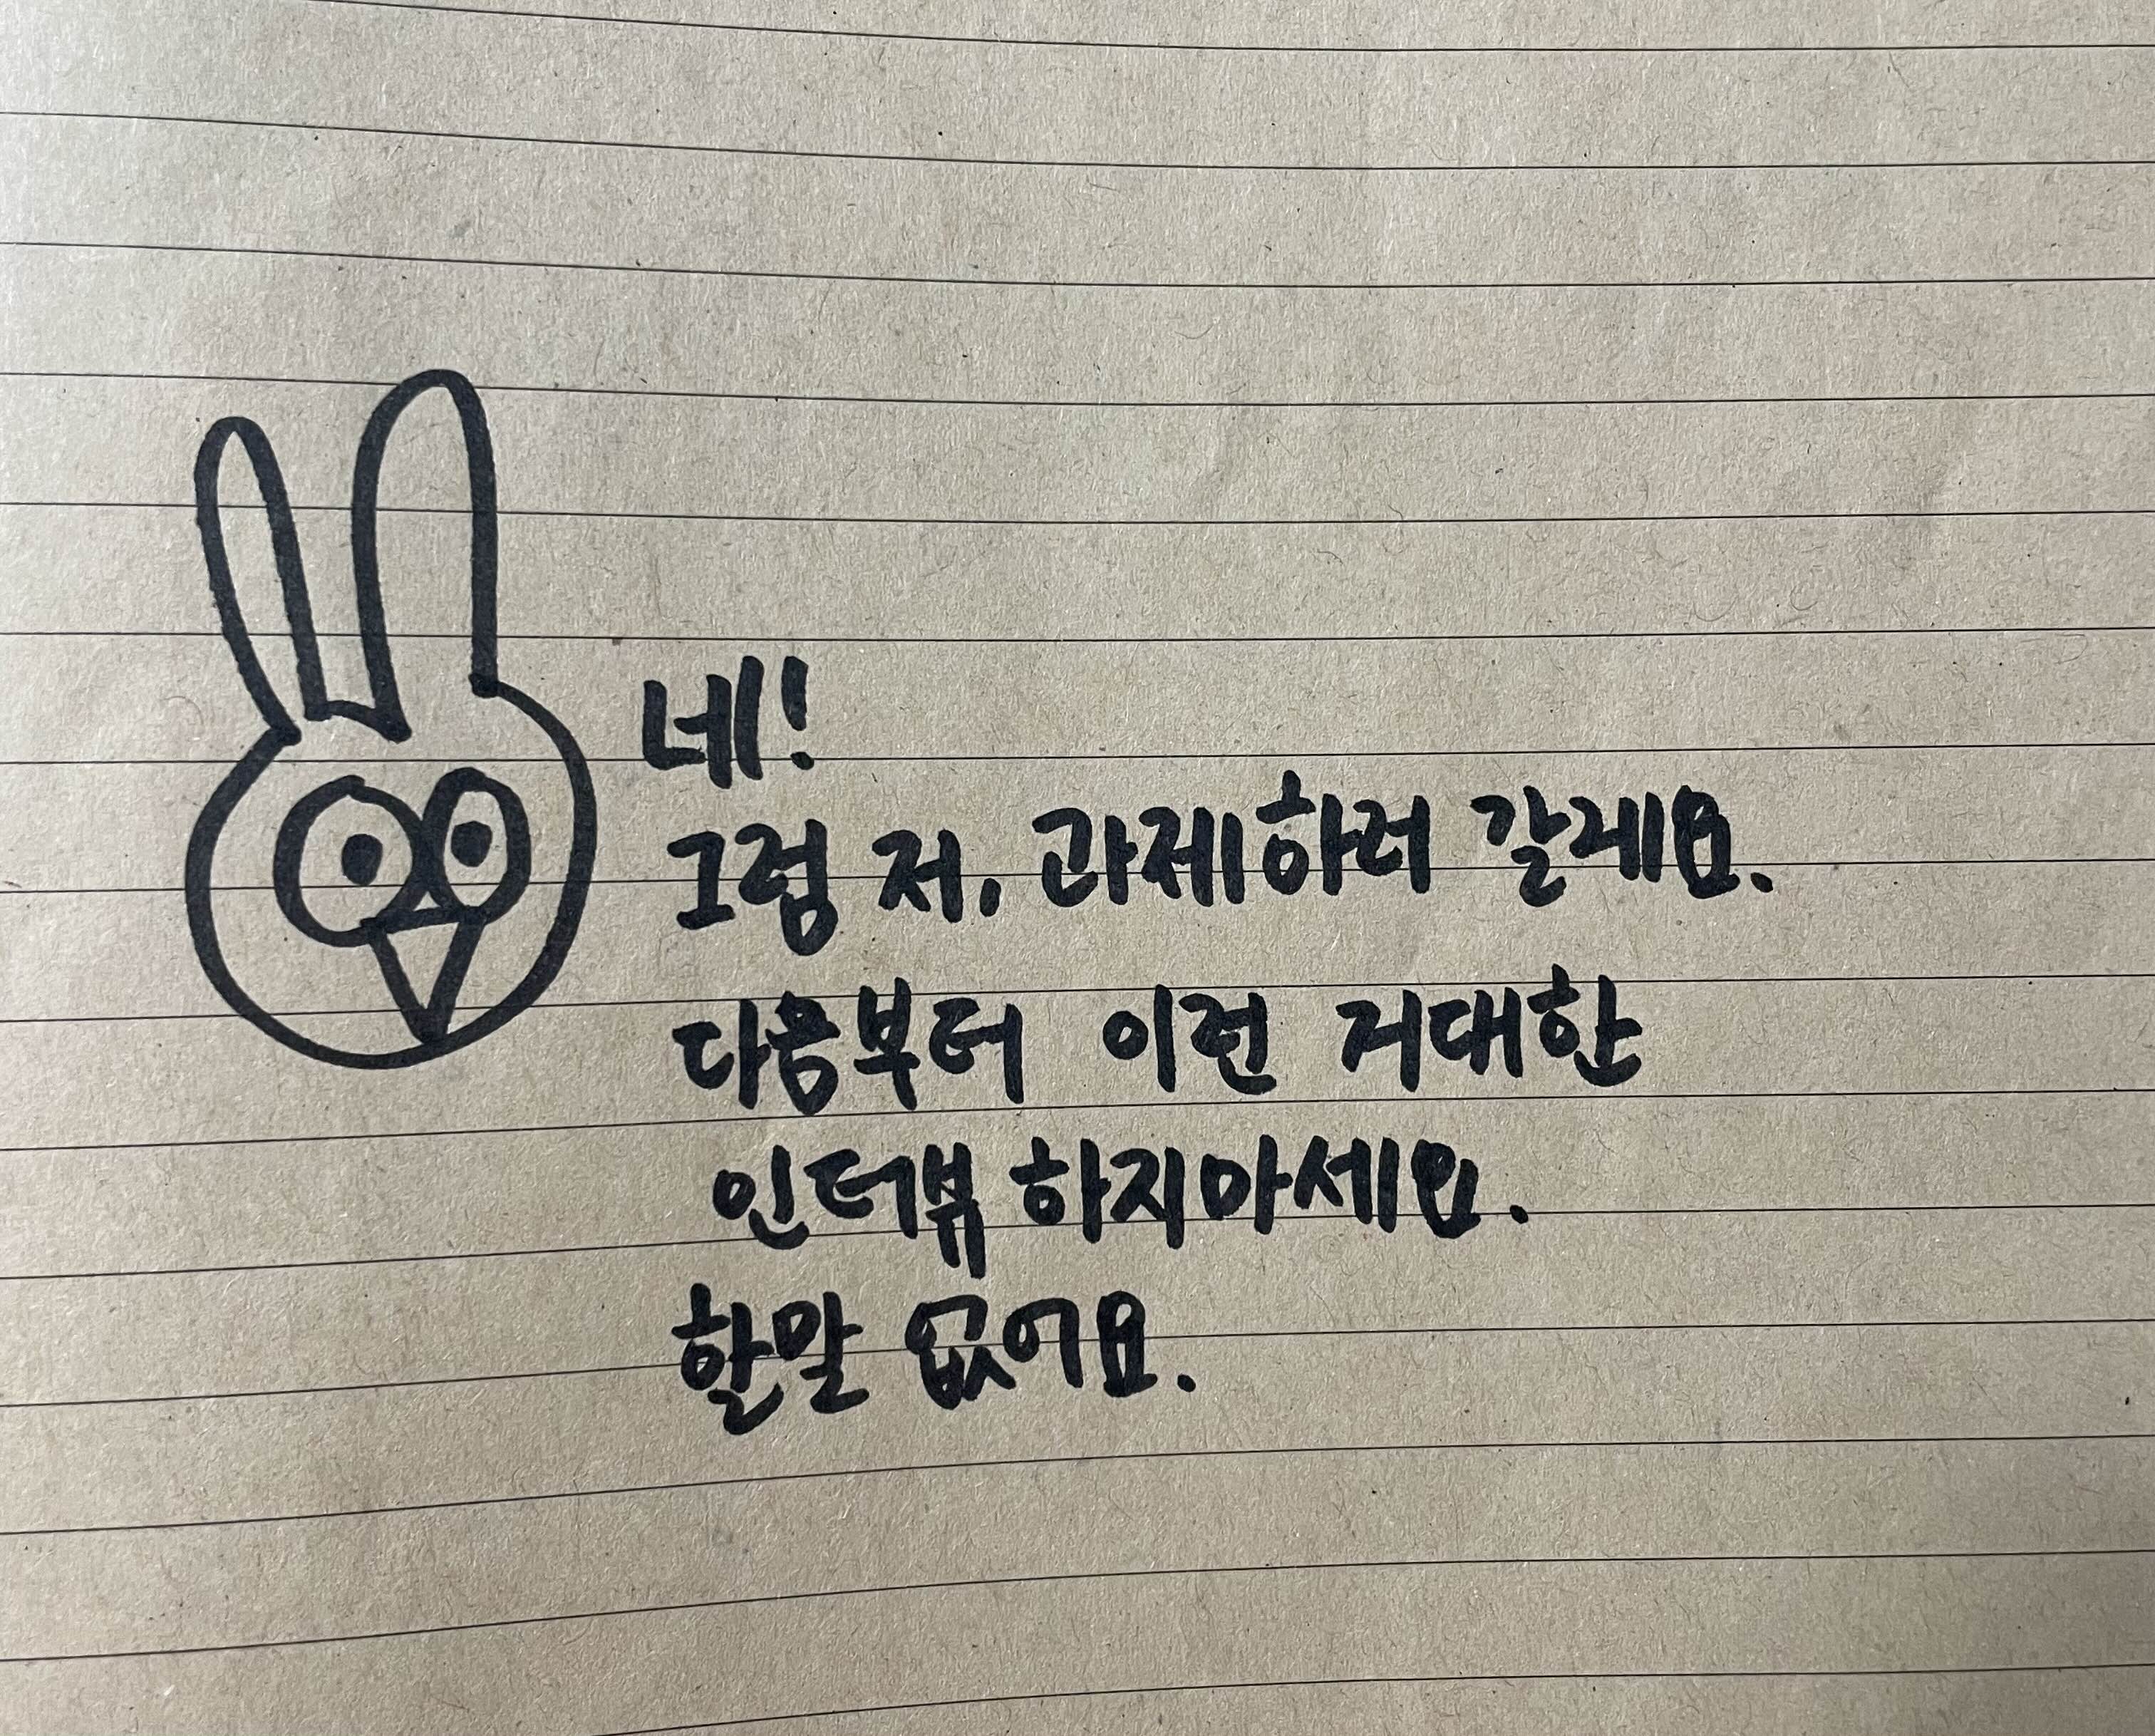 네!
그럼 저, 과제하러 갈게요.
다음부터 이런 거대한
인터뷰 하지마세요.
할말 없어요.